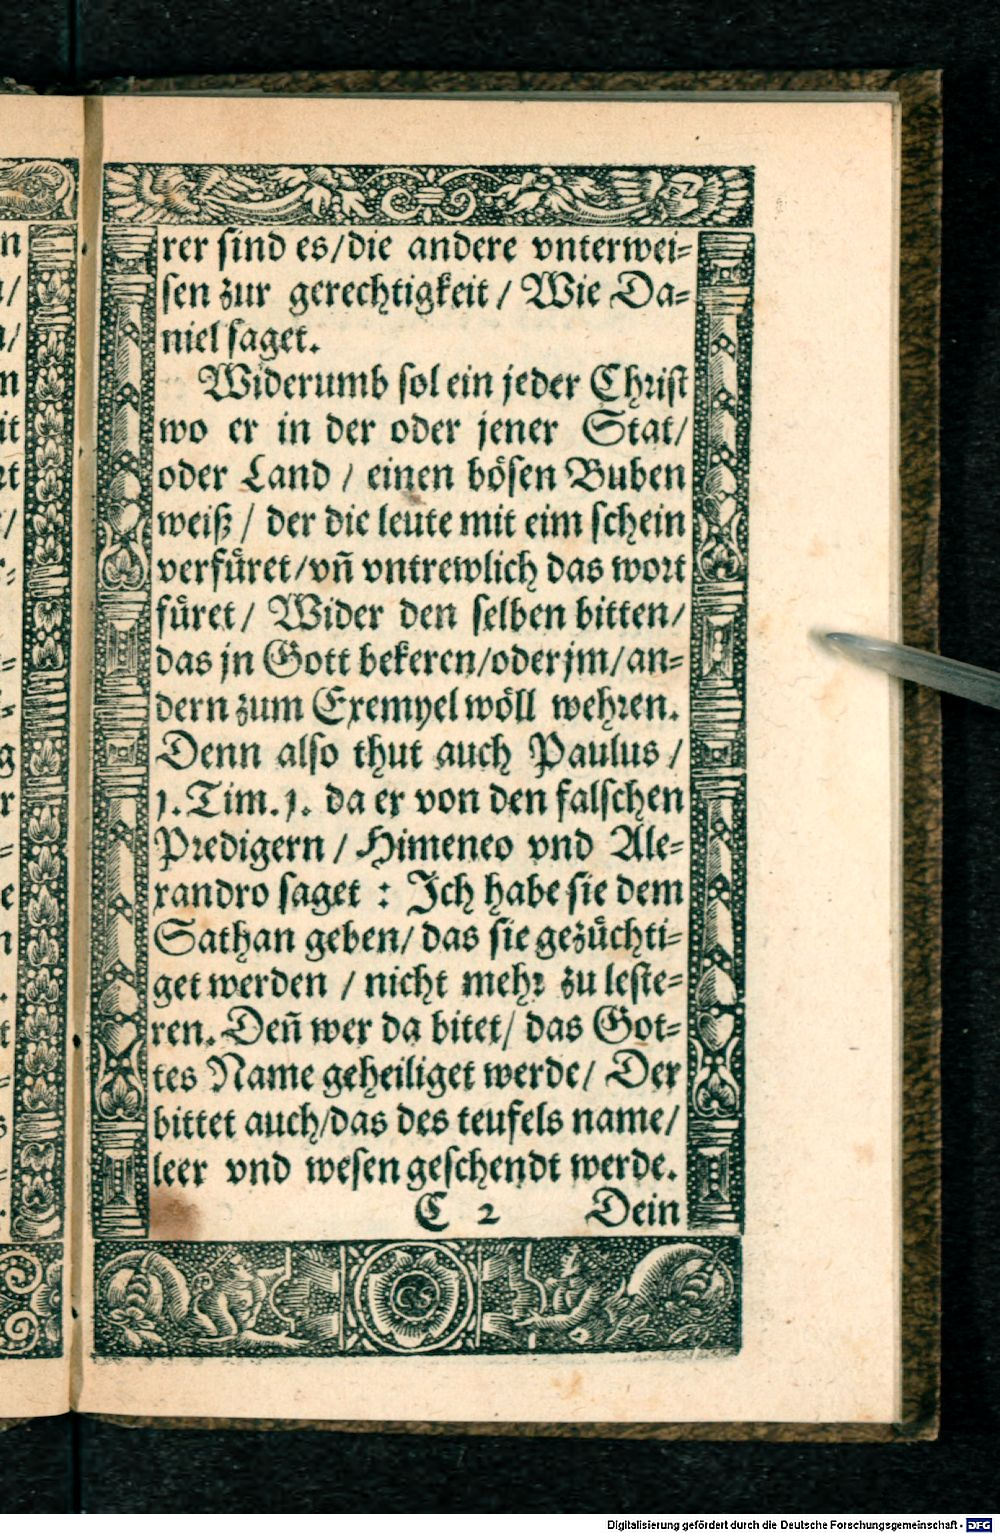 rer sind es/die andere vnterwei=
sen zur gerechtigkeit / Wie Da=
niel saget.
Widerumb sol ein jeder Christ
wo er in der oder jener Stat/
oder Land / einen bösen Buben
weiß / der die leute mit eim schein
verfüret/vñ vntrewlich das wort
füret/ Wider den selben bitten/
das jn Gott bekeren/oder jm/an=
dern zum Exempel wöll wehren.
Denn also thut auch Paulus /
j. Tim. j. da er von den falschen
Predigern / Himeneo vnd Ale=
xandro saget : Ich habe sie dem
Sathan geben/ das sie gezüchti=
get werden / nicht mehr zu leste=
ren. Deñ wer da bitet/ das Got=
tes Name geheiliget werde/ Der
bittet auch/das des teufels name/
leer vnd wesen geschendt werde.
C 2 Dein
Digitalisierung gefördert durch die Deutsche Forschungsgemeinschaft - DFG